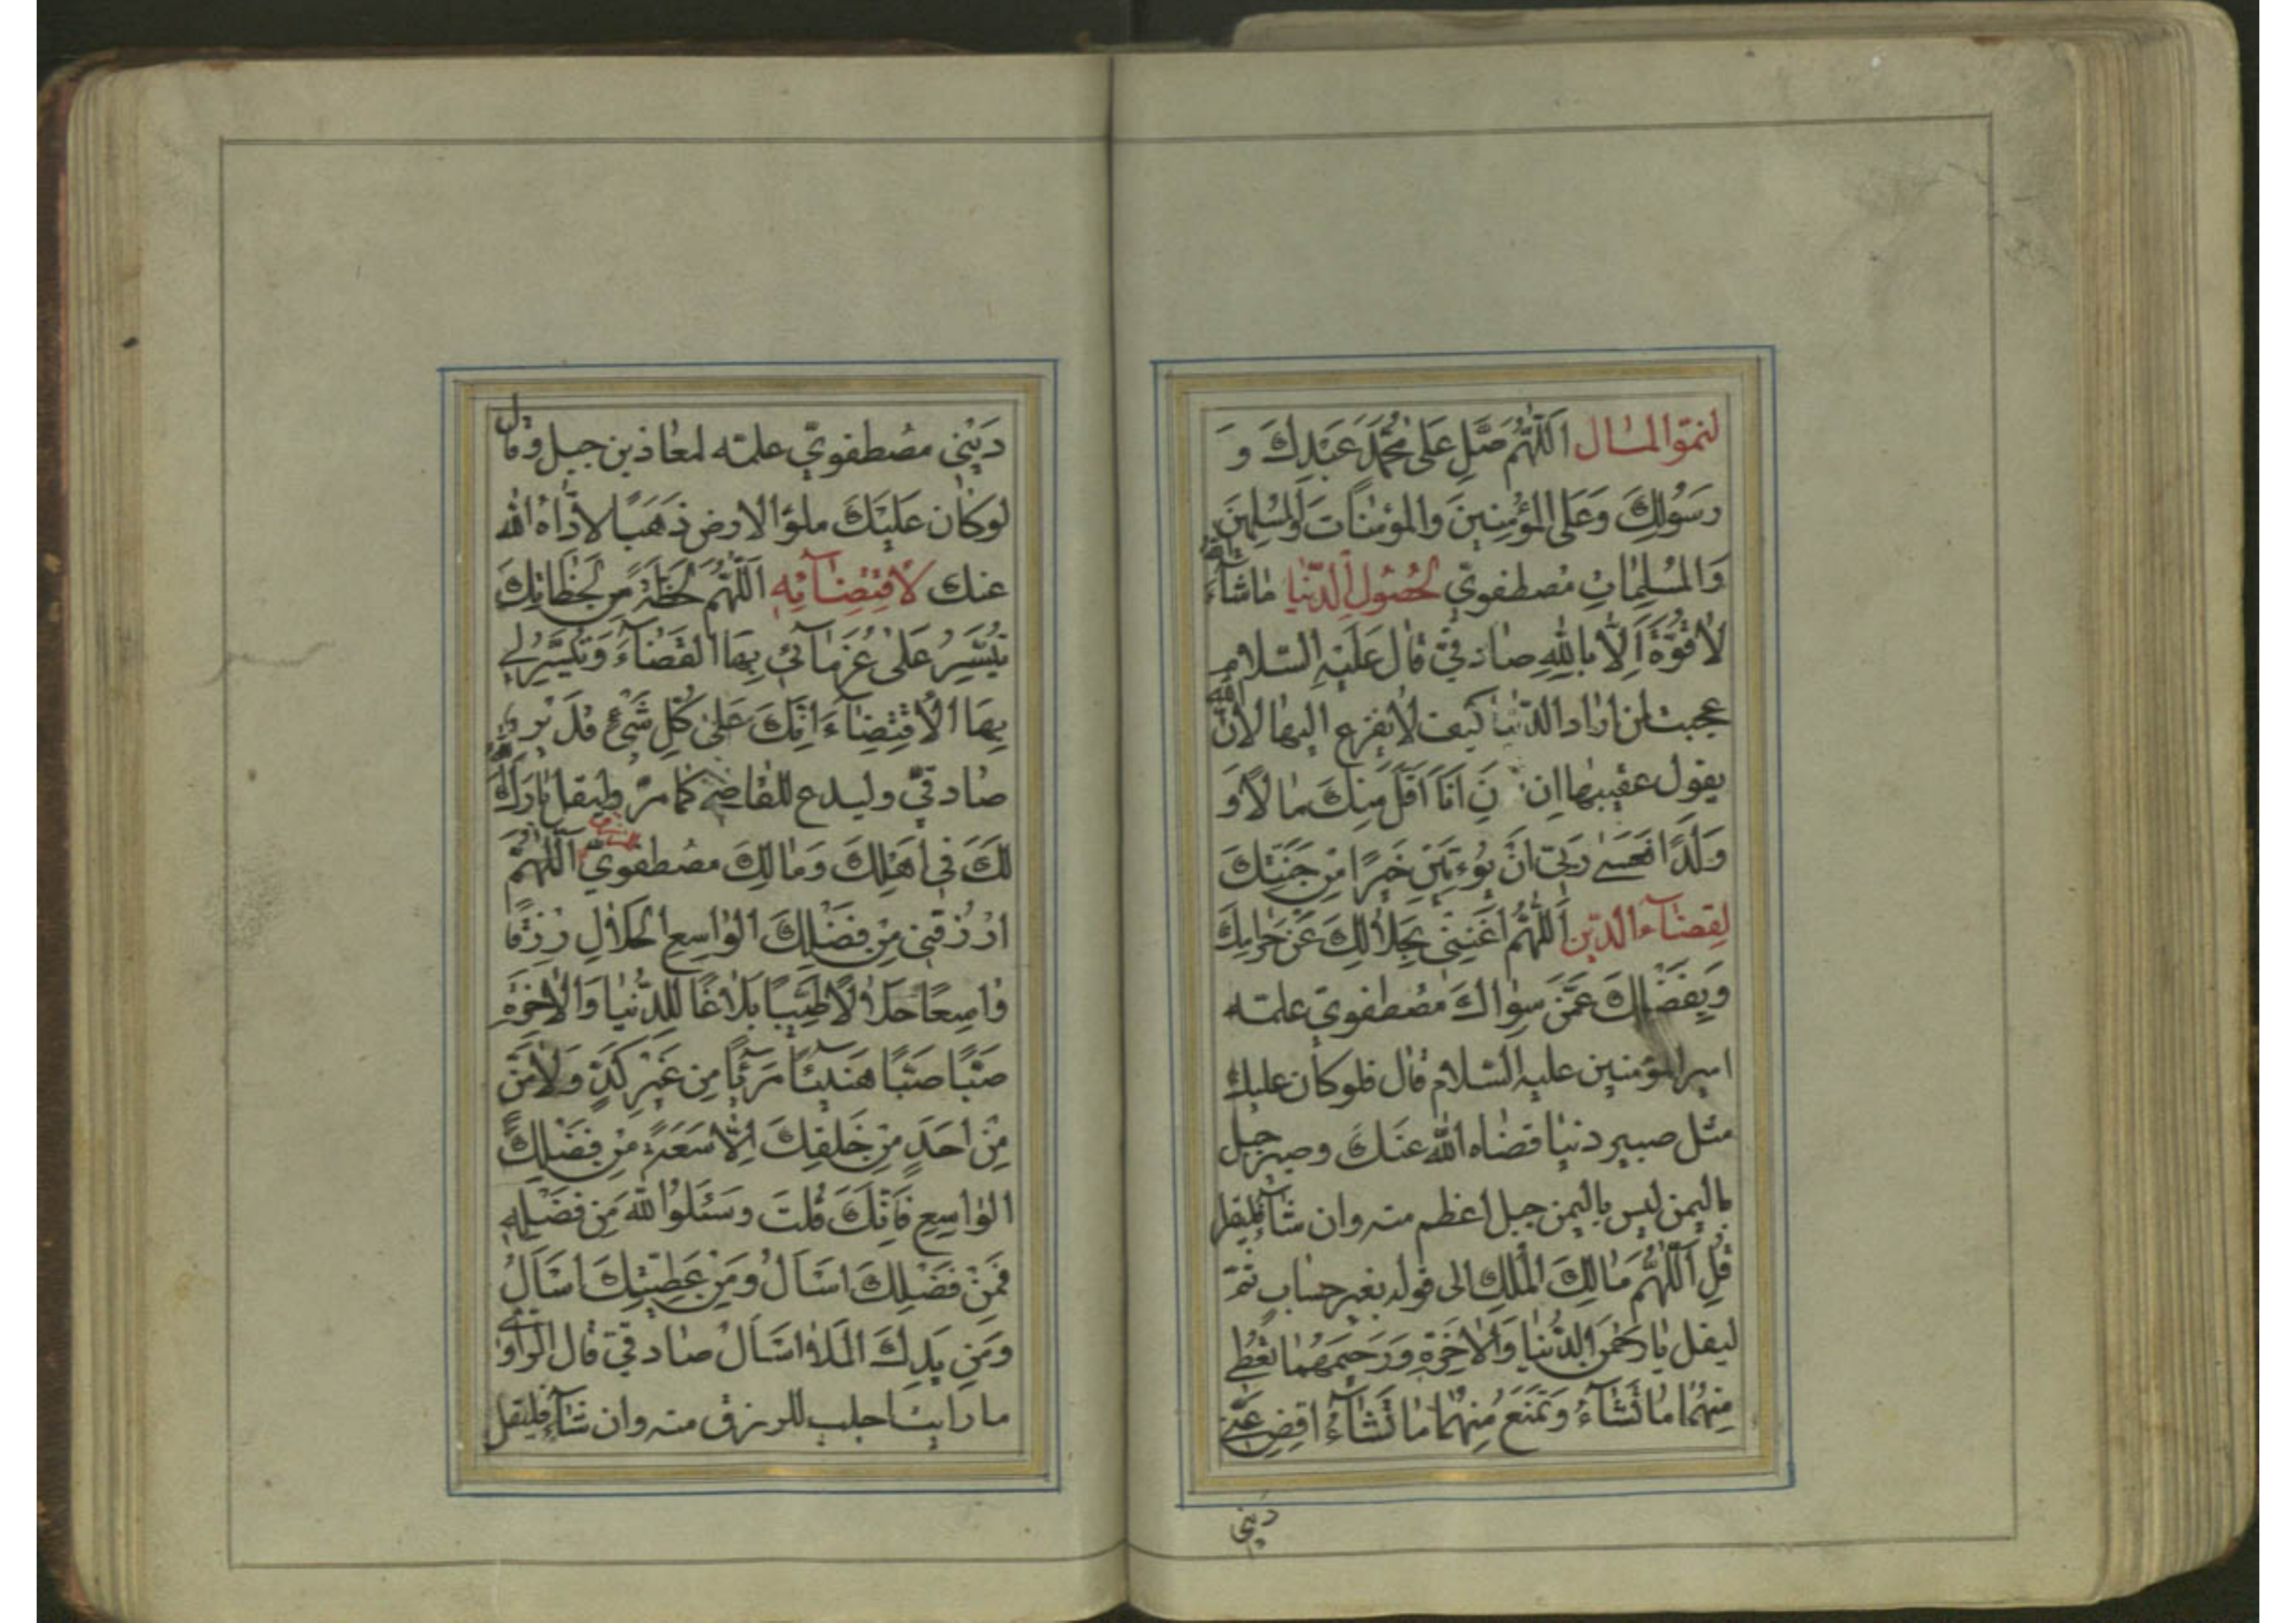 لنموّ المال اَللّٰهُمَّ صَلِّ عَلى مُحَمَّدٍ عَبْدِكَ وَ
رَسُولِكَ وَعَلَى المُؤْمِنينَ والمؤمنات وَالمُسْلِمينَ
وَالمُسْلِماتِ مصطفويّ لحُصُولِ الدّنيا ما شاءَ الله
لا قُوَّةَ اِلّا بِاللهِ صادقيّ قال عَلَيْهِ السّلام
عجبت لمن اراد الدّنيا كيف لا يفزع اليها لانّ الله
يقول عقيبها ان تَرَنِ اَنَا اَقَلَّ مِنْكَ مالًا وَ
وَلَدًا فَعَسى رَبّي اَنْ يُؤْتِيَنِ خَيْرًا مِنْ جَنَّتِكَ
لِقضاء الدّين اَللّٰهُمَّ اغْنِني بِحَلالِكَ عَنْ حَرامِكَ
وَبِفَضْلِكَ عَمَّنْ سِواكَ مصطفويّ علمته
امير المؤمنين عليه السّلام قال فلو كان عليك
مثل صبير دنيا قضاه الله عنك وصبير جبل
باليمن ليس باليمن جبل اعظم منه وان شاء فليقل
قُلِ اللّٰهُمَّ مالِكَ الْمُلْكِ الى قوله بغير حساب ثمّ
ليقل يا رَحْمنَ الدُّنْيا وَالْاٰخِرَةِ وَرَحيمَهُما تُعْطي
مِنْهُما ما تَشاءُ وَتَمْنَعُ مِنْهُما ما تَشاءُ اقْضِ عَنّي
دَيْني
دَيْني مصطفويّ علمته لمعاذ بن جبل وقال
لو كان عليك ملؤ الارض ذهبًا لادّاه الله
عنك لاقتضائه اَللّٰهُمَّ لَحْظَةً مِنْ لَحَظاتِكَ
تُيَسِّرُ عَلى غُرَمائي بِهَا الْقَضاءَ وَتُيَسِّرُ لي
بِهَا الْاِقْتِضاءَ اِنَّكَ عَلى كُلِّ شَيْءٍ قَديرٌ
صادقيّ وليدع للقاضي كما مرّ وليقل بارَكَ الله
لَكَ في اَهْلِكَ وَمالِكَ مصطفويّ اَللّٰهُمَّ
ارْزُقْني مِنْ فَضْلِكَ الْواسِعِ الْحَلالِ رِزْقًا
واسِعًا حَلالًا طَيِّبًا بَلاغًا لِلدُّنْيا وَالْاٰخِرَةِ
صَبًّا صَبًّا هَنيئًا مَريئًا مِنْ غَيْرِ كَدٍّ وَلا مَنٍّ
مِنْ اَحَدٍ مِنْ خَلْقِكَ اِلّا سَعَةً مِنْ فَضْلِكَ
الْواسِعِ فَاِنَّكَ قُلْتَ وَسْئَلُوا اللهَ مِنْ فَضْلِهِ
فَمِنْ فَضْلِكَ اَسْاَلُ وَمِنْ عَطِيَّتِكَ اَسْاَلُ
وَمِنْ يَدِكَ الْمَلْاٰ اَسْاَلُ صادقيّ قال الراوي
ما رأينا اجلب للرزق منه وان شاء فليقل